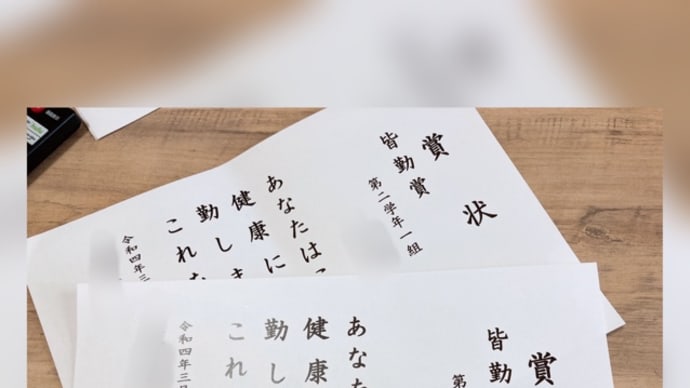 賞状
皆勤賞
第二学年一組
あなたは
健康に
勤しま
これ
令和四年三
賞
皆勤
第
あな
健康
勤し
これ
令和四年三